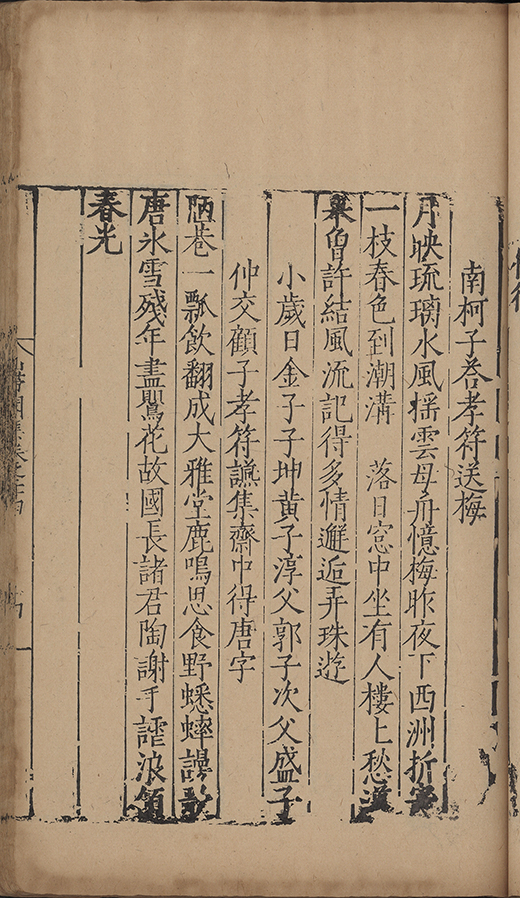 南柯子荅孝符送梅
月映琉璃水風揺雲母舟憶梅昨夜下西洲折寄
一枝春色到潮溝　落日窓中坐有人樓上愁漢
臯曾許結風流記得多情邂逅弄珠遊
小歲日金子子坤黃子淳父郭子次父盛子
仲交顧子孝符讌集齋中得唐字
陋巷一瓢飲翻成大雅堂鹿鳴思食野蟋蟀謾歌
唐氷雪殘年盡鶯花故國長諸君陶謝手謔浪領
春光
集卷之